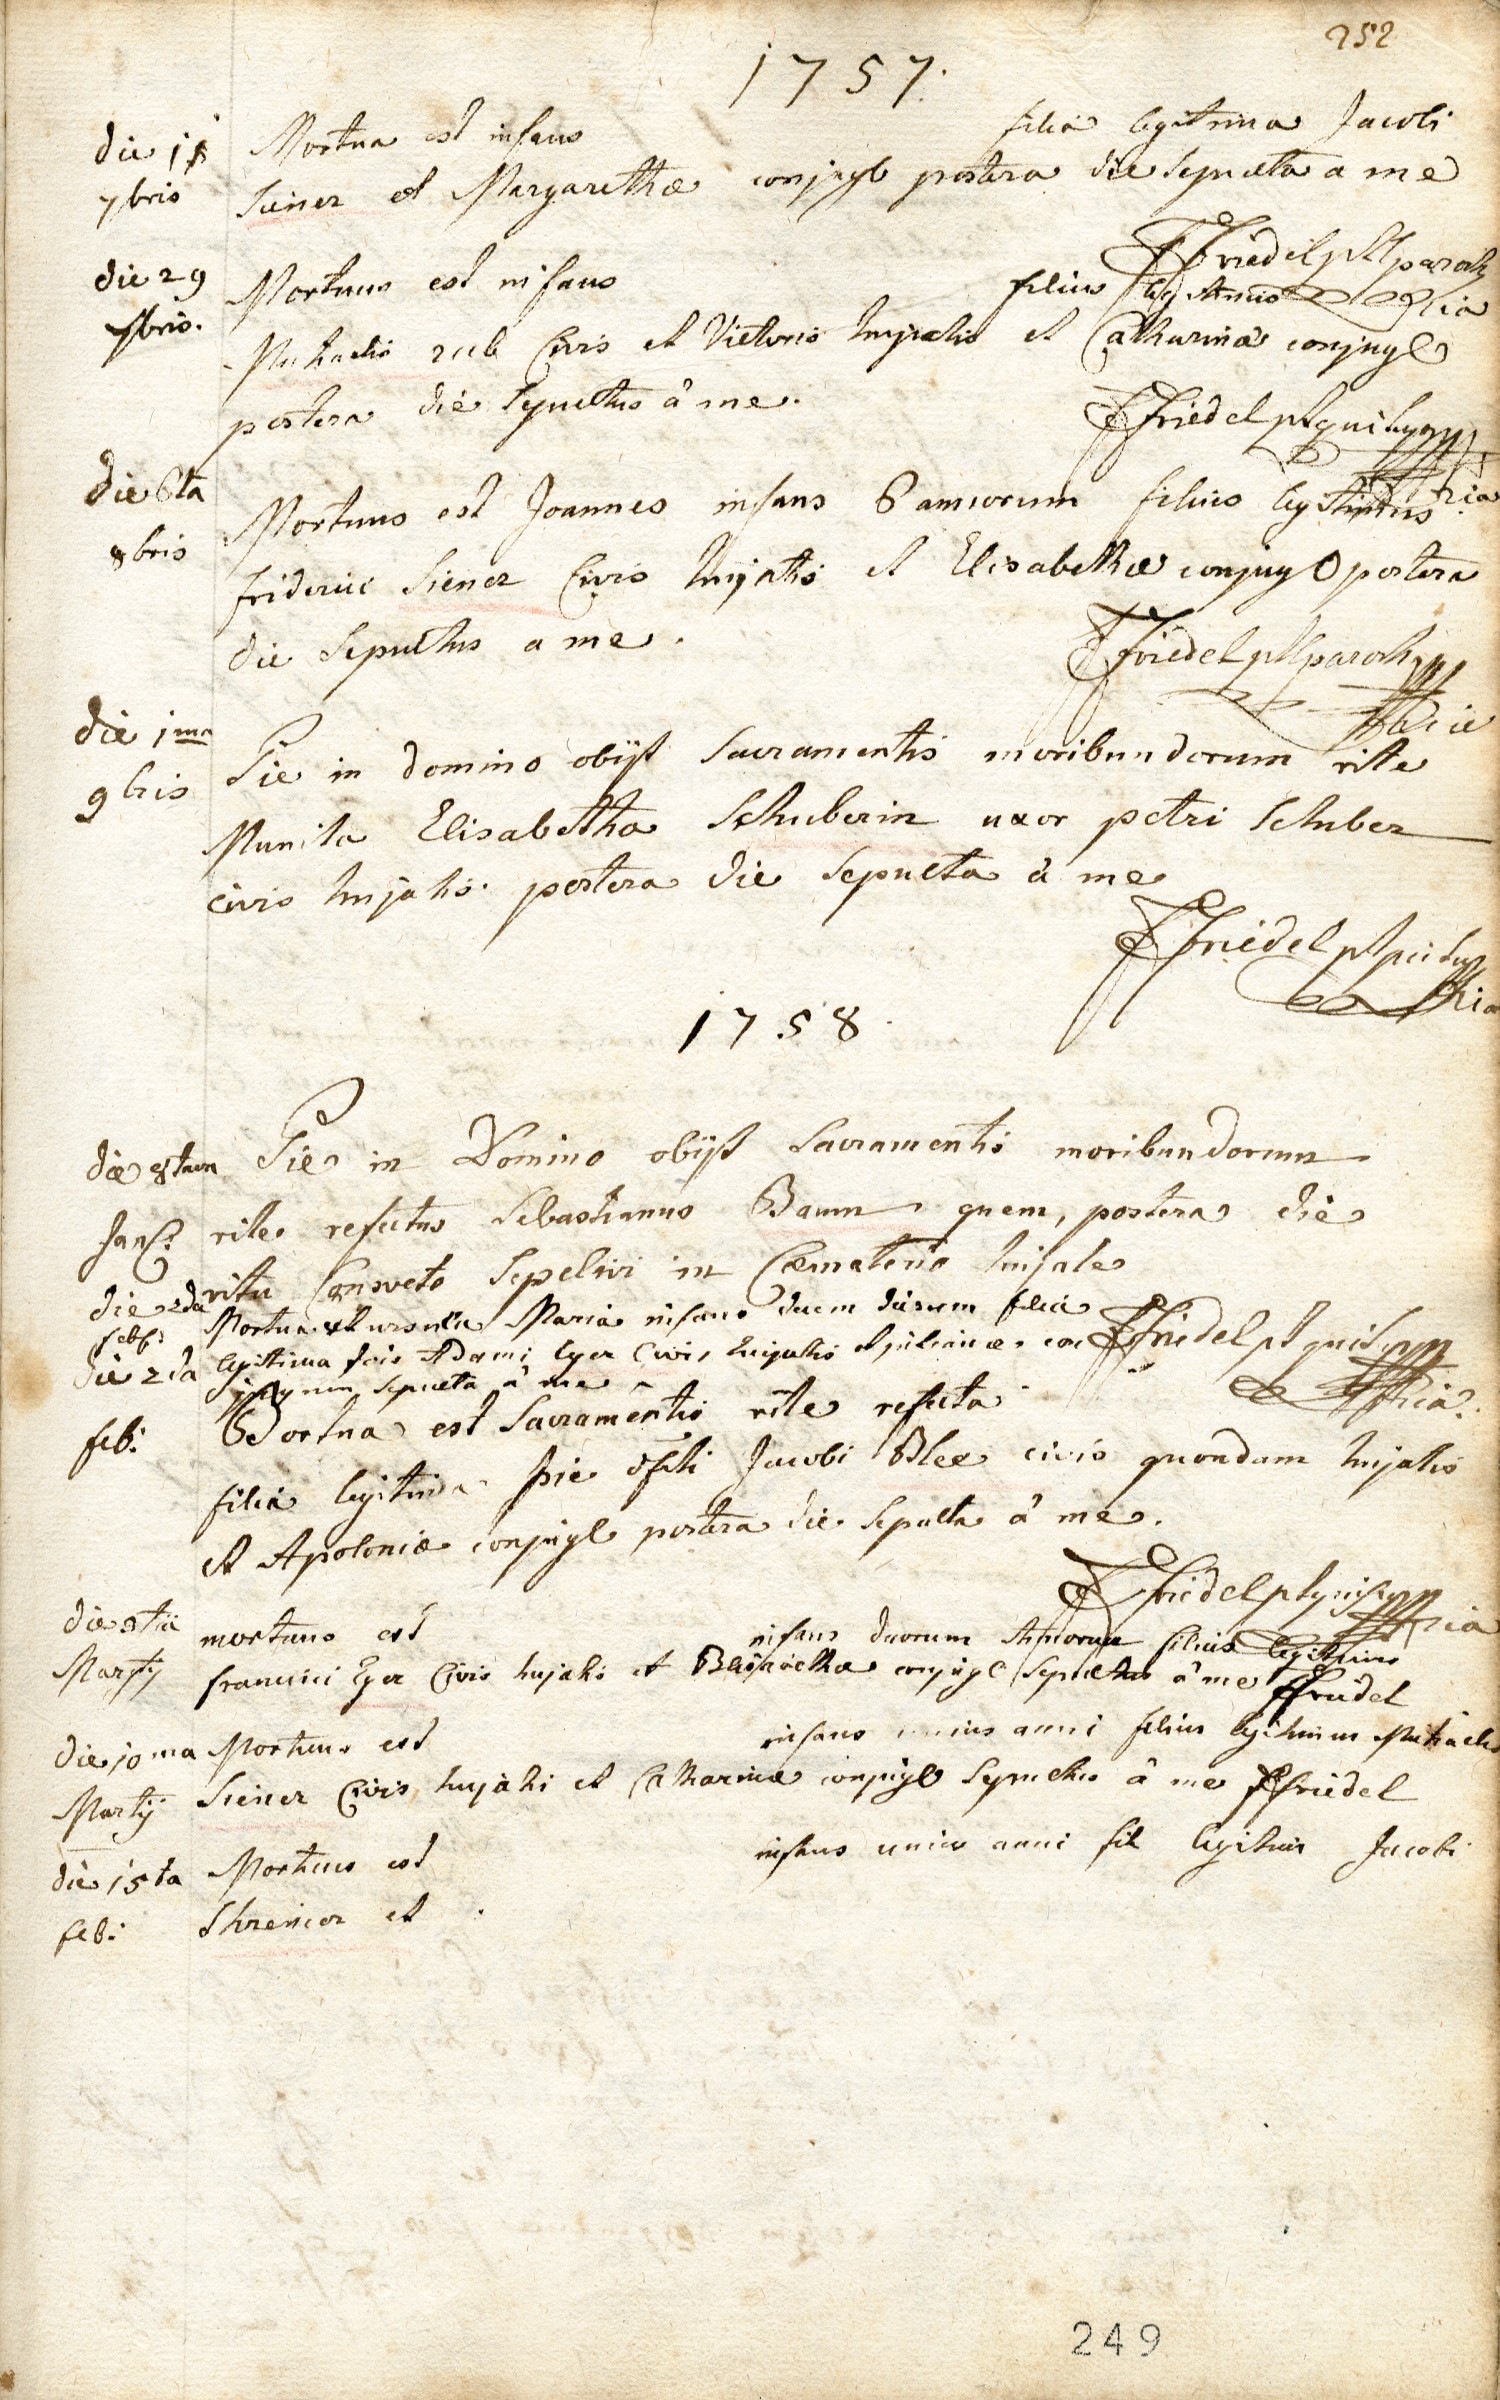 252
1757.
die 1
7bris
Mortua est infans filia legitima Jacobi
Siener et Margarethæ conjugē postera die sepulta a me
Friedel pt paroch
die 29
7bris.
Mortuus est infans filius legitimus
Michaelis civis et Victoris hujatis et Catharinæ conjugē
postera die sepultus â me.
Friedel
die 6ta
8bris
Mortuus est Joannes infans 6 annorum filius legitimus
friderici Siener civis hujatis et Elisabethæ conjug postera
die sepultus a me.
Friedel pt paroch
die 1ma
9bris
Pie in domino obiit sacramentis moribundorum rite
Munita Elisabetha Schuberin uxor petri Schuber
civis hujatis. postera die sepulta â me
Friedel
1758
Jan:
Pie in Domino obiit sacramentis moribundorum
rite refectus Sebastianus Baum quem, postera die
ritu consveto sepelivi in Cæmeterio hujate
Friedel
die 2da
feb:
Mortua est ursula Maria infans dierum filia
legitima Adami Eger Civis hujatis et julianæ con
jugum sepulta â me
die 2da
feb:
Mortua est Sacramentis rite refecta
filia legitima pie Jacobi Blee civis quondam hujatis
et Apoloniæ conjugē postera die sepulta â me.
Friedel
die 3tia
Martij
mortuus est infans duorum Annorum filius legitimus
francisci Eger Civis hujatis et conjugē sepultus â me Friedel
die 10ma
Martij
Mortuus est infans unius anni filius legitimus Michaelis
Siener Civis hujatis et Catharinæ conjugē sepultus â me Friedel
die 15ta
feb:
Mortuus est infans unius anni fil legitimus Jacobi
Shreiner et
249